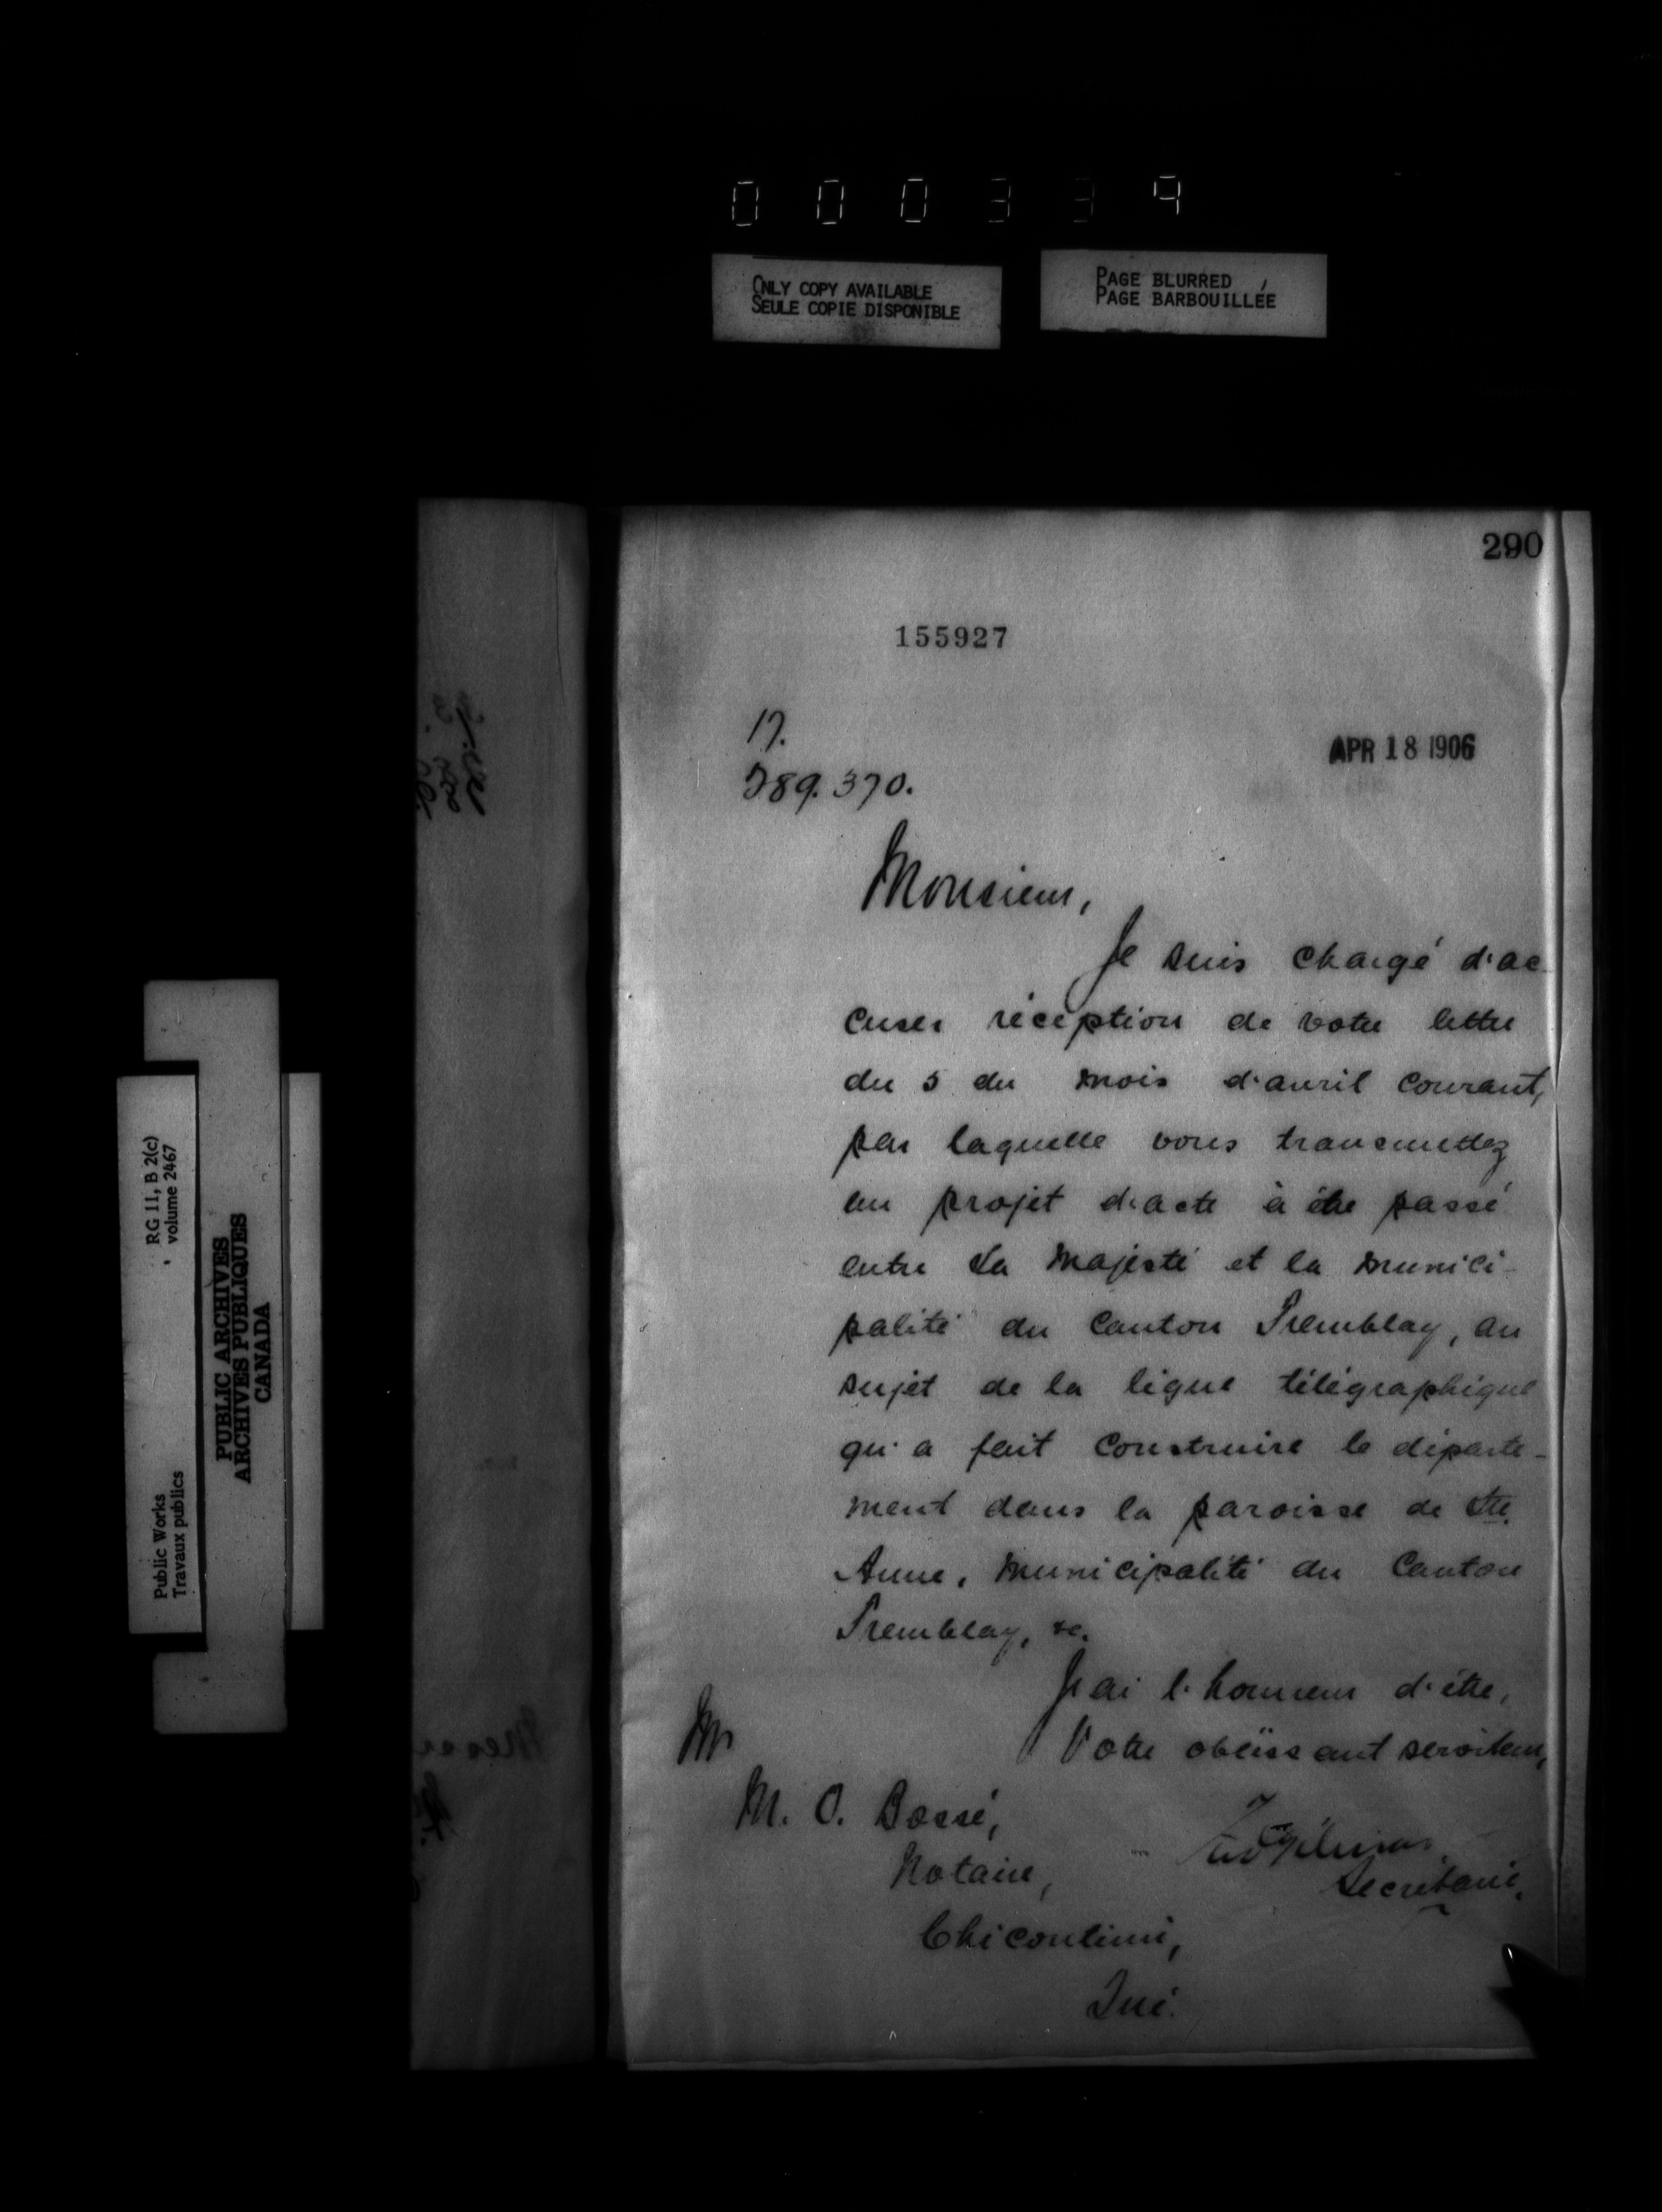 000339
ONLY COPY AVAILABLE
SEULE COPIE DISPONIBLE
PAGE BLURRED
PAGE BARBOUILLÉE
290
155927
17.
APR 18 1906
389.370.
Monsieur,
Je suis chargé d'ac-
cuser réception de votre lettre
du 5 du mois d'avril courant,
par laquelle vous transmettez
un projet d'acte à être passé
entre Sa Majesté et la munici-
palité du Canton Tremblay, au
sujet de la ligne télégraphique
qu'a fait construire le départe-
ment dans la paroisse de Ste.
Anne, municipalité du Canton
Tremblay, &c.
J'ai l'honneur d'être,
Votre obéissant serviteur,
M. O. Bossé,
Notaire,
Secrétaire,
Chicoutimi,
Qué.
Public Works
Travaux publics
RG 11, B 2(c)
volume 2467
PUBLIC ARCHIVES
ARCHIVES PUBLIQUES
CANADA